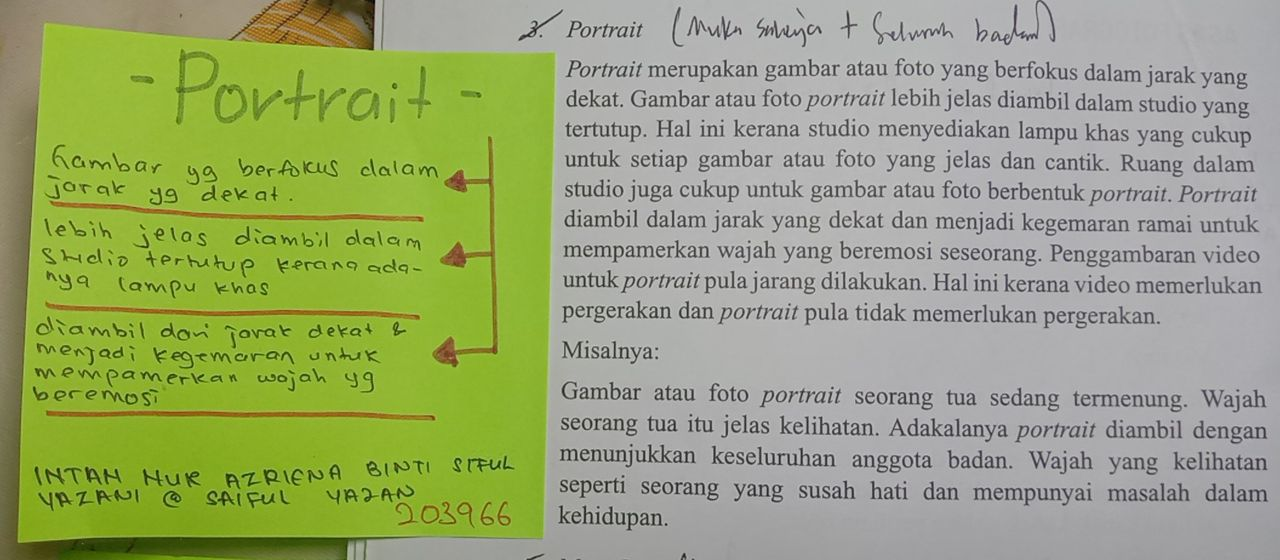 - Portrait -
Gambar yg berfokus dalam
jarak yg dekat.
lebih jelas diambil dalam
studio tertutup kerana ada-
nya lampu khas
diambil dari jarak dekat &
menjadi kegemaran untuk
mempamerkan wajah yg
beremosi
INTAN NUR AZRIENA BINTI SIFUL
YAZANI @ SAIFUL YAZAN
203966
3. Portrait (Muka sahaja + Seluruh badan)
Portrait merupakan gambar atau foto yang berfokus dalam jarak yang
dekat. Gambar atau foto portrait lebih jelas diambil dalam studio yang
tertutup. Hal ini kerana studio menyediakan lampu khas yang cukup
untuk setiap gambar atau foto yang jelas dan cantik. Ruang dalam
studio juga cukup untuk gambar atau foto berbentuk portrait. Portrait
diambil dalam jarak yang dekat dan menjadi kegemaran ramai untuk
mempamerkan wajah yang beremosi seseorang. Penggambaran video
untuk portrait pula jarang dilakukan. Hal ini kerana video memerlukan
pergerakan dan portrait pula tidak memerlukan pergerakan.
Misalnya:
Gambar atau foto portrait seorang tua sedang termenung. Wajah
seorang tua itu jelas kelihatan. Adakalanya portrait diambil dengan
menunjukkan keseluruhan anggota badan. Wajah yang kelihatan
seperti seorang yang susah hati dan mempunyai masalah dalam
kehidupan.